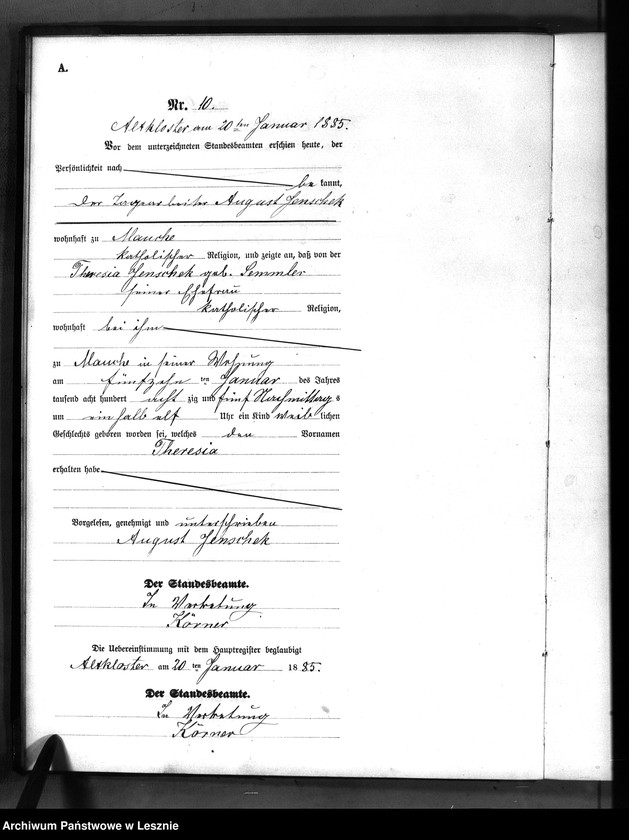 A.
Nr. 10.
Altkloster am 20 ten Januar 1885.
Vor dem unterzeichneten Standesbeamten erschien heute, der
Persönlichkeit nach
be kannt,
der Tagearbeiter August Jenschek
wohnhaft zu Mauche
katholischer Religion, und zeigte an, daß von der
Theresia Jenschek geb. Semmler
seiner Ehefrau
katholischer Religion,
wohnhaft bei ihm
zu Mauche in seiner Wohnung
am fünfzehn ten Januar des Jahres
tausend acht hundert acht zig und fünf Nachmittag s
um ein halb elf Uhr ein Kind weib lichen
Geschlechts geboren worden sei, welches den Vornamen
Theresia
erhalten habe
Vorgelesen, genehmigt und unterschrieben
August Jenschek
Der Standesbeamte.
In Vertretung
Körner
Die Uebereinstimmung mit dem Hauptregister beglaubigt
Altkloster am 20 ten Januar 18 85.
Der Standesbeamte.
In Vertretung
Körner
Archiwum Państwowe w Lesznie